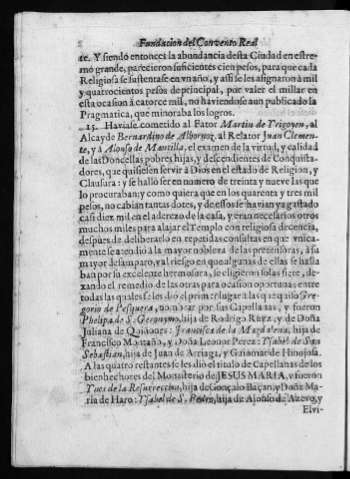 Fundacion del Convento Real
te. Y siendo entonces la abundancia desta Ciudad en estre-
mo grande, parecieron suficientes cien pesos, para que cada
Religiosa se sustentase en vn año, y assi se les asignaron à mil
y quatrocientos pesos de principal, por valer el millar en
esta ocasion à catorce mil, no haviendose aun publicado la
Pragmatica, que minoraba los logros.
15. Haviase cometido al Fator Martin de Yrigoyen, al
Alcayde Bernardino de Albornoz, al Relator Juan Clemen-
te, y à Alonso de Mantilla, el examen de la virtud, y calidad
de las Doncellas pobres hijas, y descendientes de Conquista-
dores, que quisiesen servir à Dios en el estado de Religion, y
Clausura: y se hallò ser en numero de treinta y nueve las que
lo procuraban: y como quiera que en los quarenta y tres mil
pesos, no cabian tantas dotes, y de ellos se havian ya gastado
casi diez mil en el aderezo de la casa, y eran necesarios otros
muchos miles para alajar el Templo con religiosa decencia,
despues de deliberarlo en repetidas consultas en que vnica-
mente se atendiò à la mayor nobleza de las pretensoras, à su
mayor desamparo, y al riesgo en que algunas de ellas se halla
ban por su excelente hermosura, se eligieron solas siete, de-
xando el remedio de las otras para ocasion oportuna: entre
todas las quales se les diò el primer lugar à las que quiso Gre-
gorio de Pesquera, nombrar por sus Capellanas, y fueron
Phelipa de S. Geronymo, hija de Rodrigo Ruiz, y de Doña
Juliana de Quiñones: Francisca de la Magdalena, hija de
Francisco Montaño, y Doña Leonor Perez: Ysabel de San
Sebastian, hija de Juan de Arriaga, y Guiomar de Hinojosa.
A las quatro restantes se les diò el titulo de Capellanas de los
bienhechores del Monasterio de JESUS MARIA, y fueron
Ynes de la Resurreccion, hija de Gonçalo Baçan, y Doña Ma-
ria de Haro: Ysabel de S. Pedro, hija de Alonso de Azevo, y
Elvi-